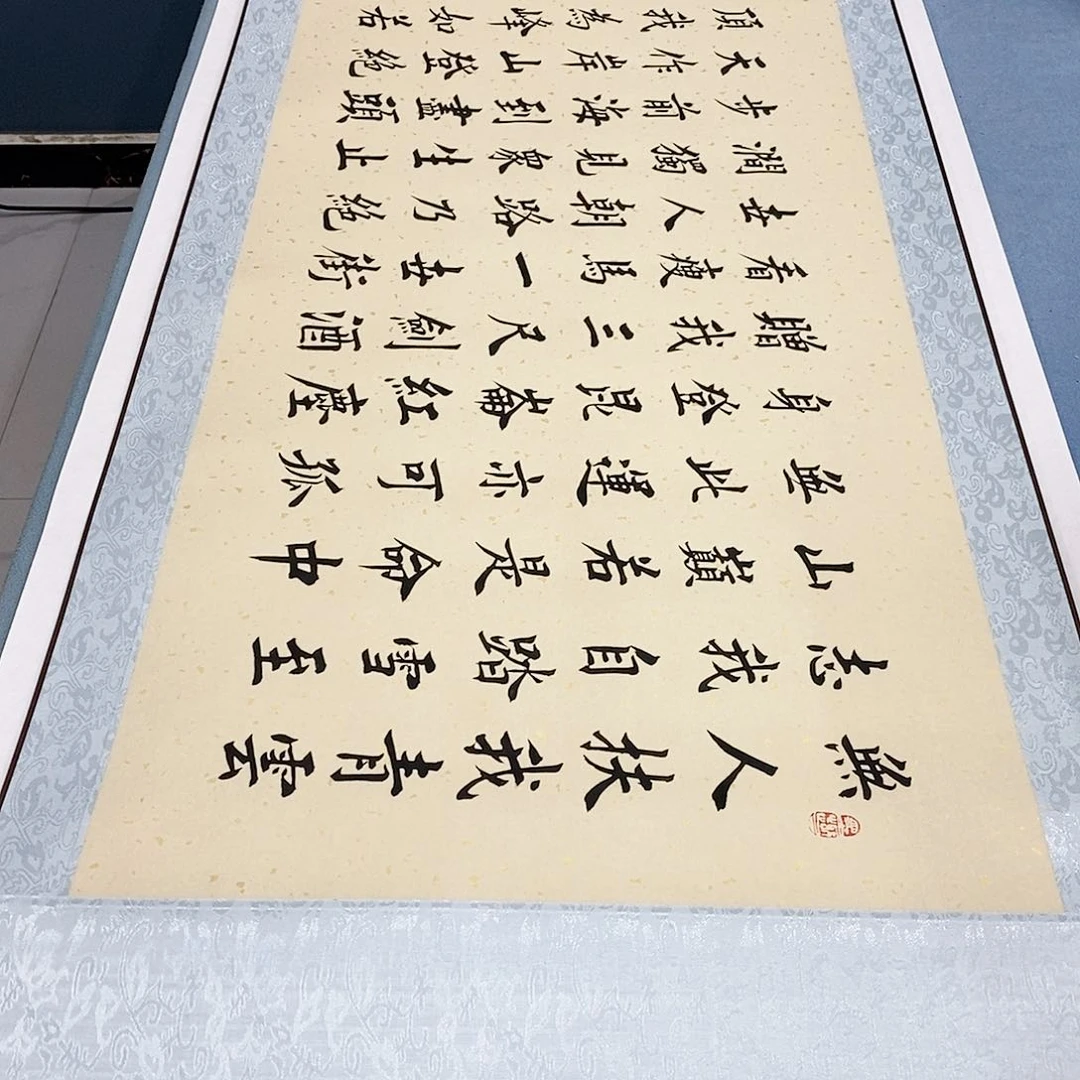 無人扶我青雲
志我自踏雪至
山巔若是命中
無此運亦可孤
身登昆崙紅塵
贈我三尺劍酒
看瘦馬一世街
世人朝路乃絕
澗獨見眾生止
步前海到盡頭
天作岸山登絕
頂我為峰如若